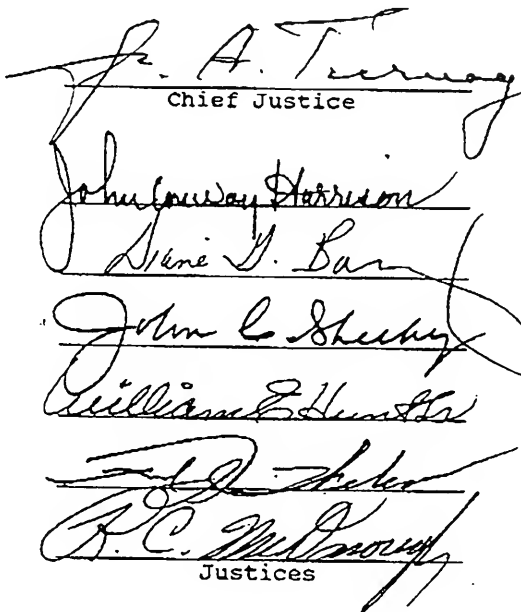 J. A. Turnage
Chief Justice
John Conway Harrison
Diane G. Barz
John C. Sheehy
William E. Hunt Sr
R. C. McDonough
Justices